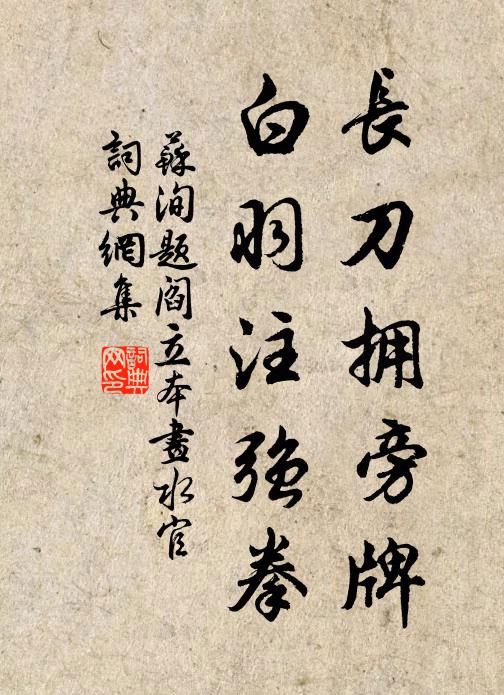 長刀拥旁牌
白羽注强拳
蘇洵题閻立本畫水官
詞典網集
詞典网印